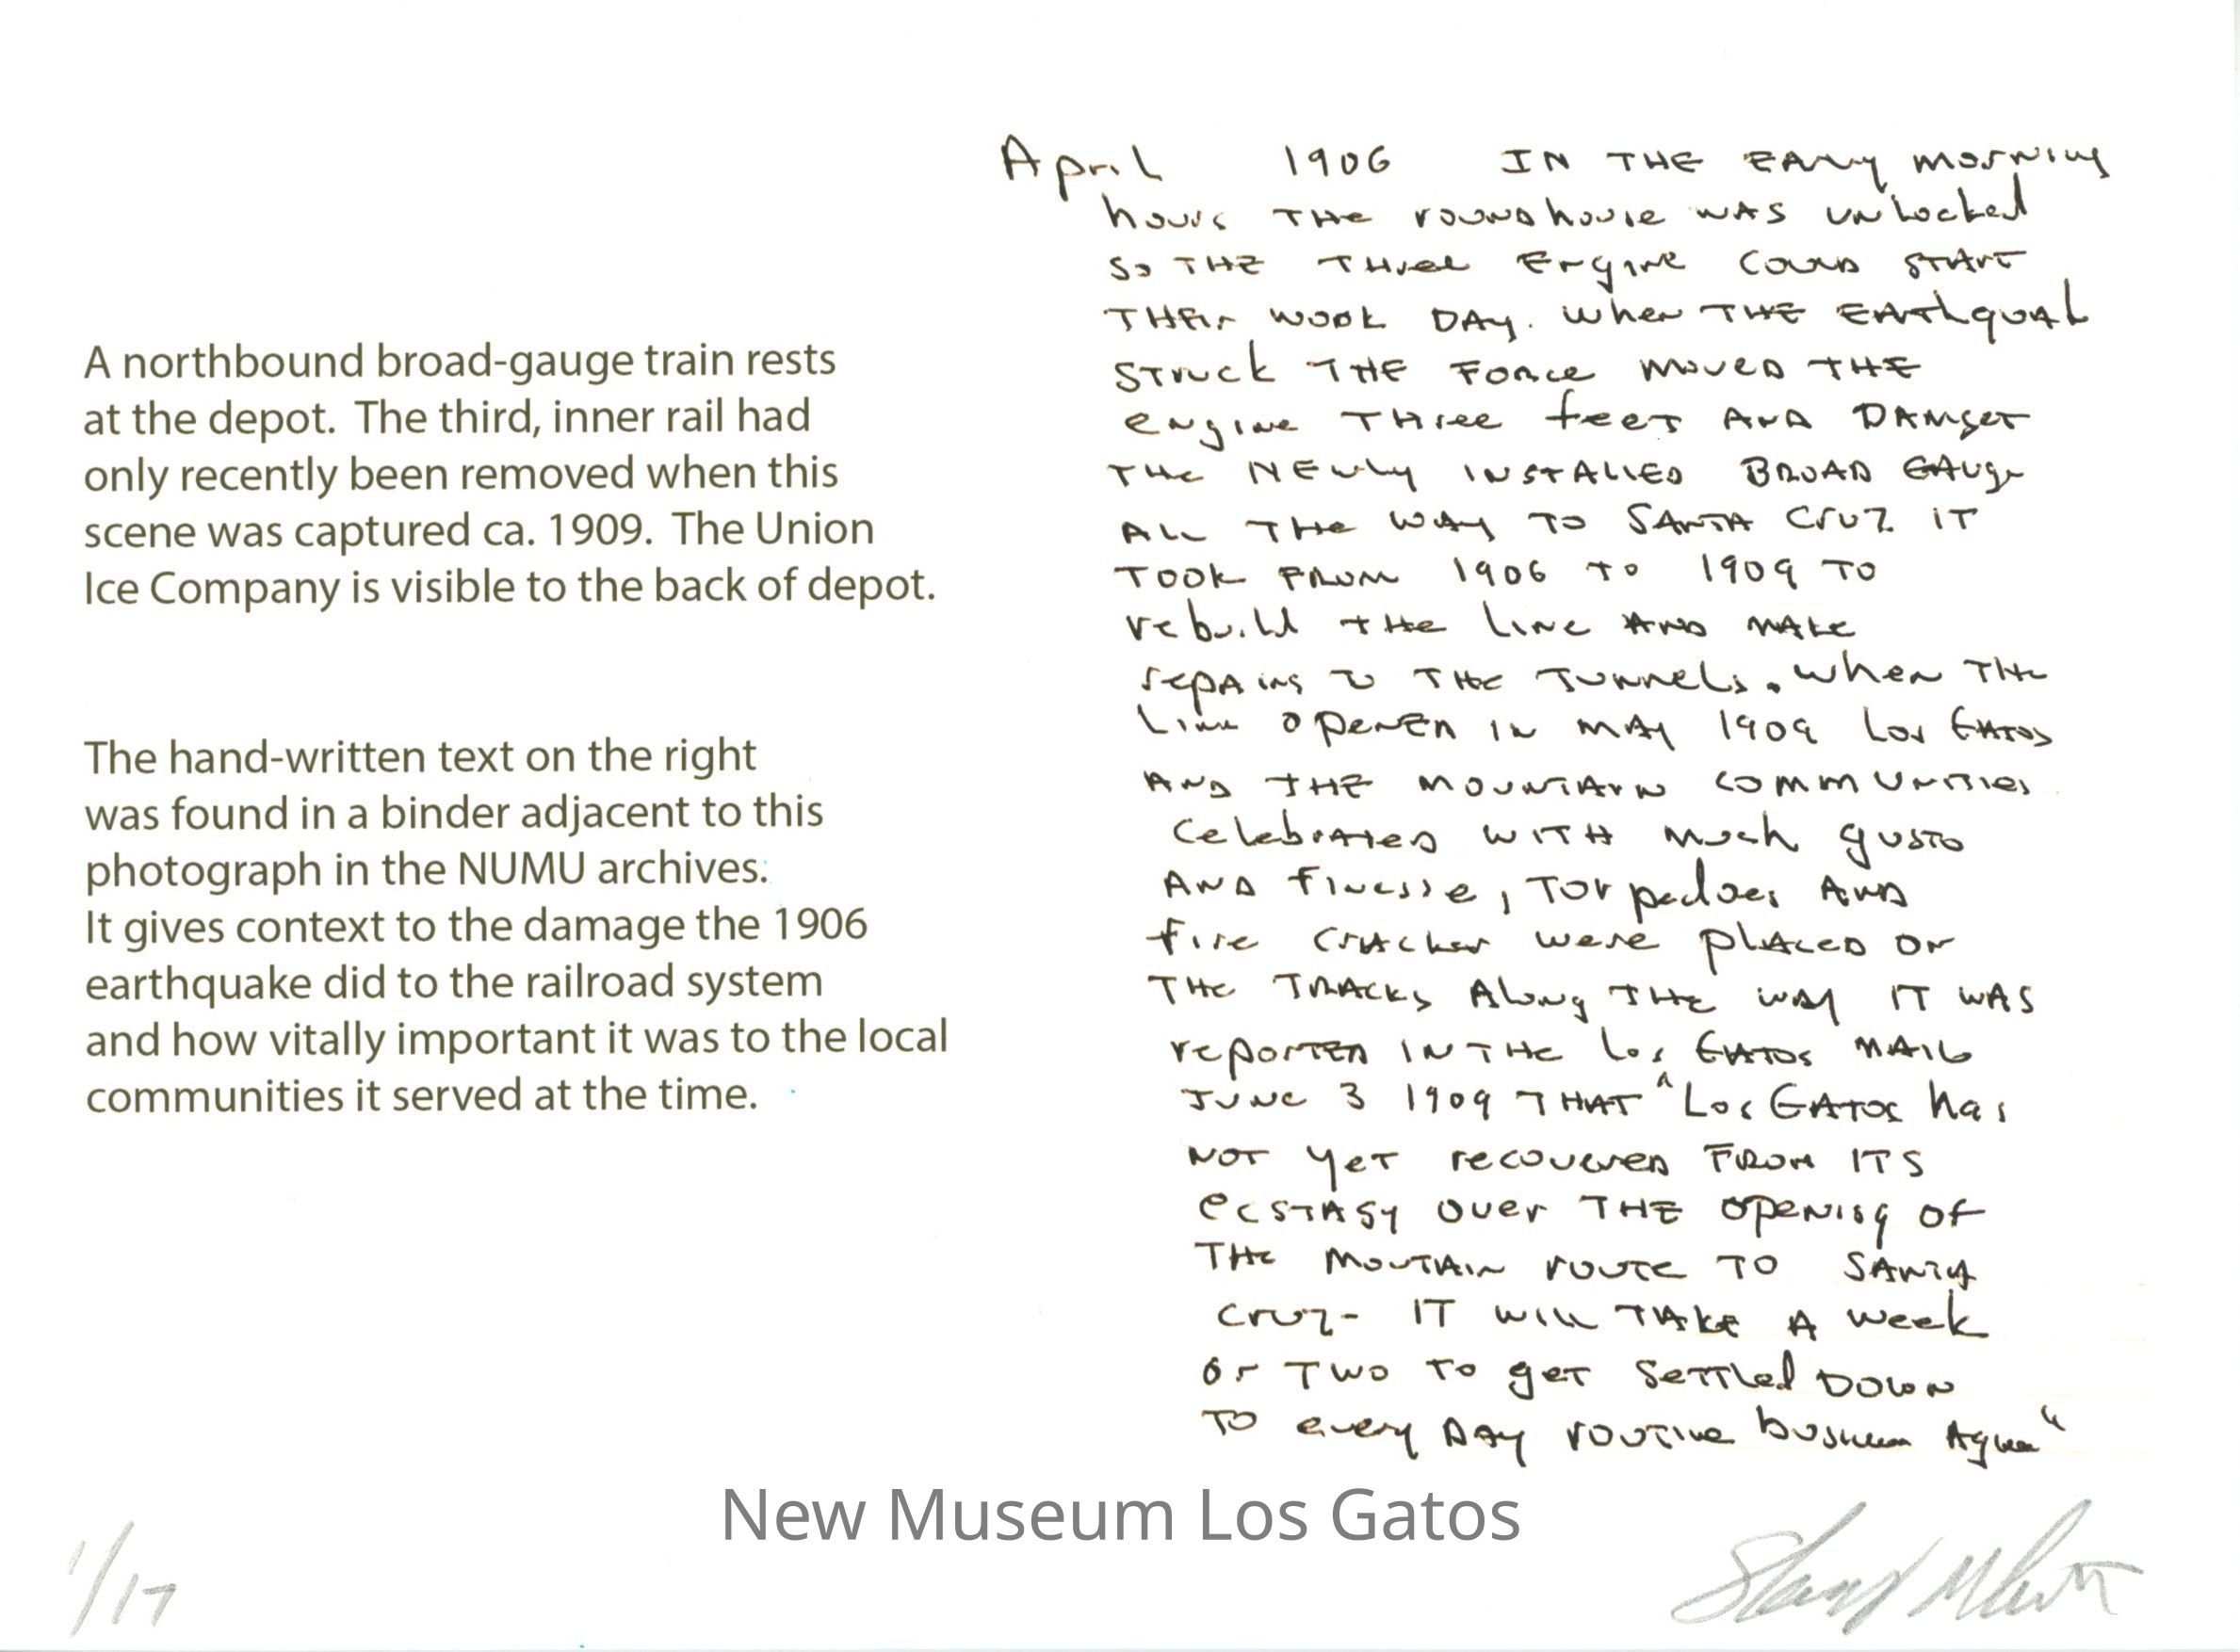 A northbound broad-gauge train rests
at the depot.  The third, inner rail had
only recently been removed when this
scene was captured ca. 1909.  The Union
Ice Company is visible to the back of depot.
The hand-written text on the right
was found in a binder adjacent to this
photograph in the NUMU archives.
It gives context to the damage the 1906
earthquake did to the railroad system
and how vitally important it was to the local
communities it served at the time.
April 1906 IN THE EArly morning
hours THe roundhouse WAS unlocked
So THE THree Engine Could START
THEir Work DAy. When THE EArthquak
STruck THE Force moved THE
engine THree feet And
THe NEwly INSTALLED BROAD GAuge
ALL THe WAy TO SANTA Cruz IT
TOOk FROM 1906 To 1909 TO
rebuild THe Line AND MAke
repAirs To THe Tunnels. When THe
Line OpenED in MAy 1909 Los GATos
AND THE MOUNTAIN COMMUNITIes
CelebrATeD WITH Much gusto
AND finesse, TOrpedoes AND
fire CrAcker were plACeD On
THe TRACKs Along THe WAy IT WAS
reporTED IN THe Los GATos MAIL
June 3 1909 THAT "Los GATos has
NOT yeT recovereD FROM ITS
ecSTASy Over THE Opening Of
THe MouTAin rouTe TO SANTA
Cruz- IT Will TAke A Week
Or Two To get SeTTled Down
TO every DAy rouTine business AgAin"
New Museum Los Gatos
1/17